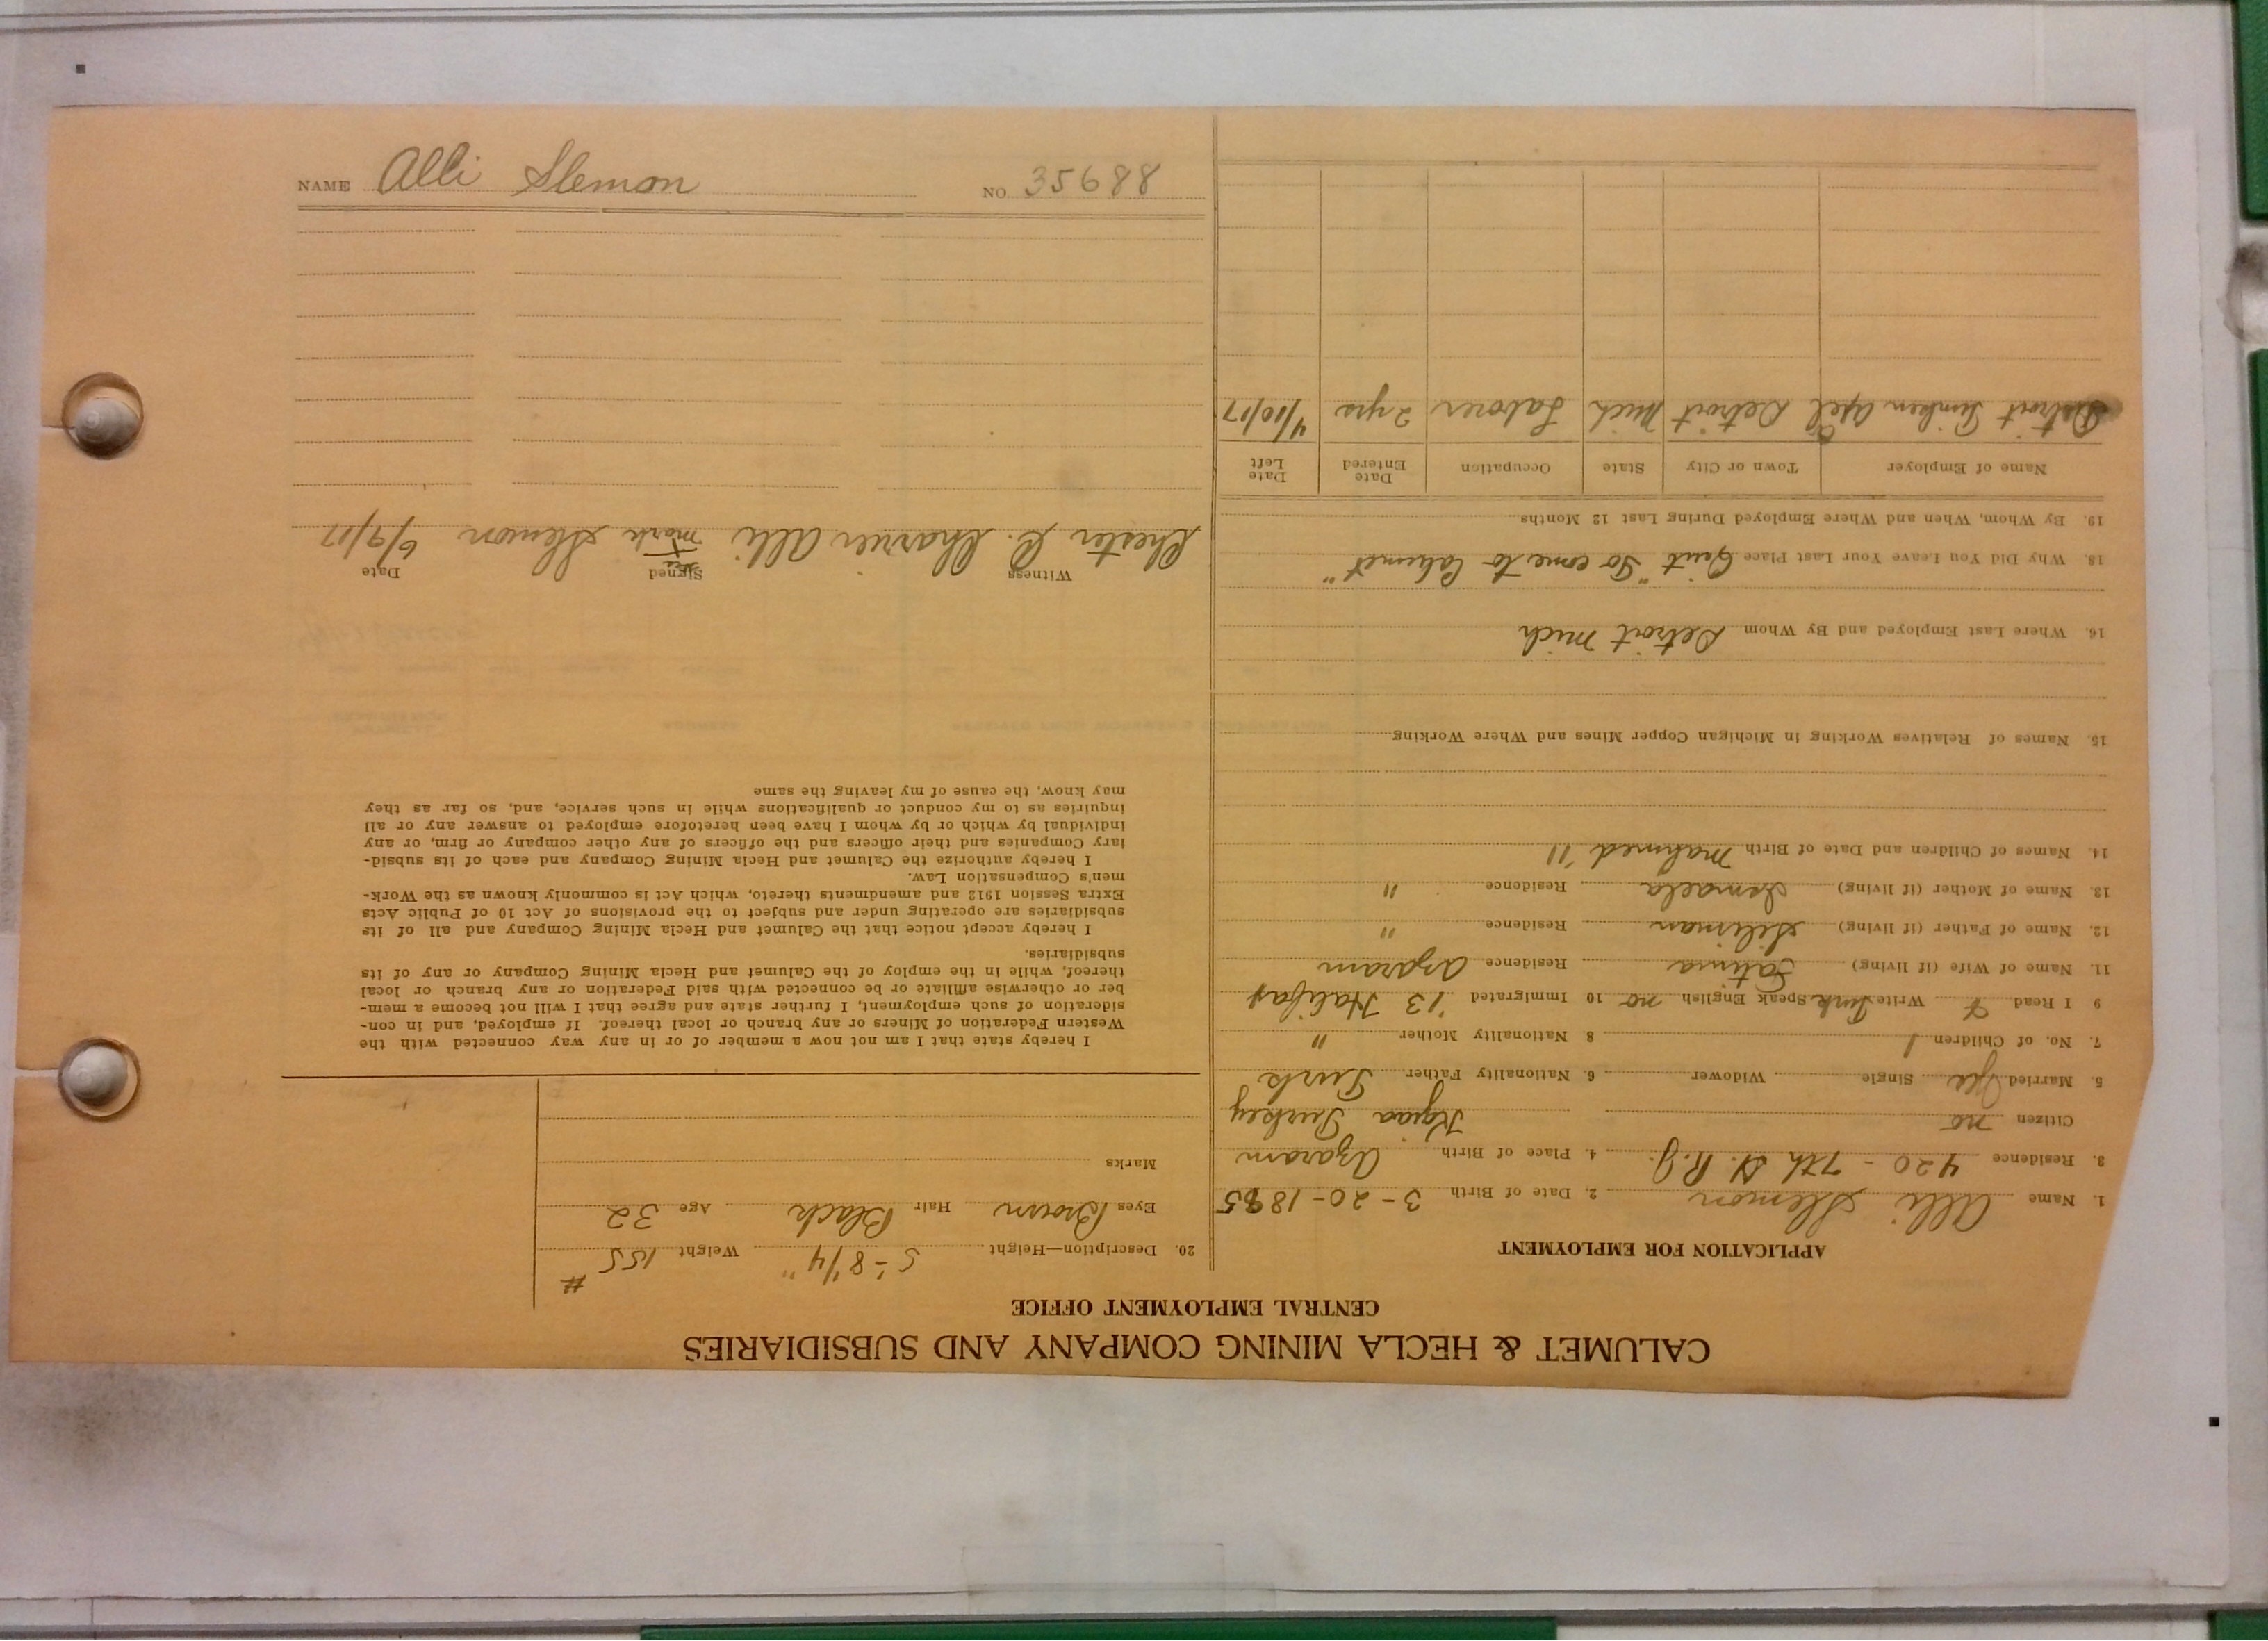 CALUMET & HECLA MINING COMPANY AND SUBSIDIARIES
CENTRAL EMPLOYMENT OFFICE
APPLICATION FOR EMPLOYMENT
1. Name Alli Slemon 2. Date of Birth 3-20-1885
3. Residence 420-7th St. R.J. 4. Place of Birth Azaram
Citizen no Turkey
5. Married Yes Single Widower 6. Nationality Father Turk
7. No. of Children 1 8 Nationality Mother "
9 I Read & Write Turk Speak English no 10 Immigrated '13 Halifax
11. Name of Wife (if living) Fatima Residence Azaram
12. Name of Father (if living) Siliman Residence "
13. Name of Mother (if living) Ismaela Residence "
14. Names of Children and Date of Birth Mahmed '11
15. Names of Relatives Working in Michigan Copper Mines and Where Working
16. Where Last Employed and By Whom Detroit Mich
18. Why Did You Leave Your Last Place Quit "To come to Calumet"
19. By Whom, When and Where Employed During Last 12 Months
Name of Employer Town or City State Occupation Date Entered Date Left
Detroit Timken Detroit Mich Laborer 2 yrs 4/10/17
20. Description—Height 5'-8 1/4" Weight 155 #
Eyes Brown Hair Black Age 32
Marks
I hereby state that I am not now a member of or in any way connected with the
Western Federation of Miners or any branch or local thereof. If employed, and in con-
sideration of such employment, I further state and agree that I will not become a mem-
ber or otherwise affiliate or be connected with said Federation or any branch or local
thereof, while in the employ of the Calumet and Hecla Mining Company or any of its
subsidiaries.
I hereby accept notice that the Calumet and Hecla Mining Company and all of its
subsidiaries are operating under and subject to the provisions of Act 10 of Public Acts
Extra Session 1912 and amendments thereto, which Act is commonly known as the Work-
men's Compensation Law.
I hereby authorize the Calumet and Hecla Mining Company and each of its subsid-
iary Companies and their officers and the officers of any other company or firm, or any
individual by which or by whom I have been heretofore employed to answer any or all
inquiries as to my conduct or qualifications while in such service, and, so far as they
may know, the cause of my leaving the same
Witness Signed Date
Chester C. Charrier Alli his x mark Slemon 6/9/17
NAME Alli Slemon NO. 35688